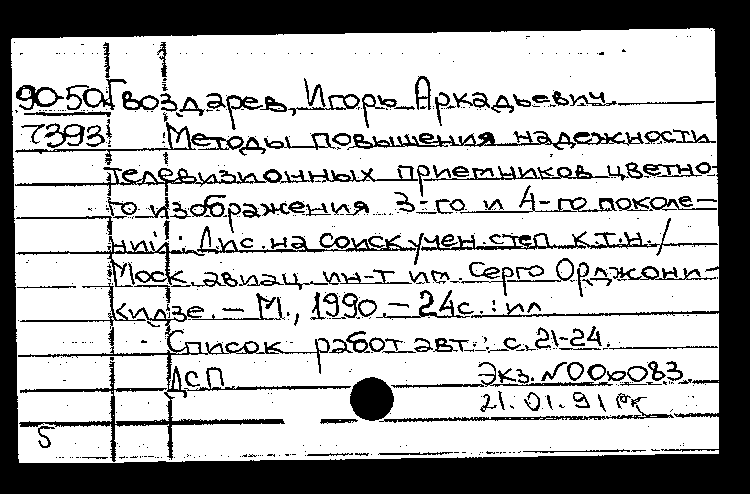 90-50 Гвоздарев, Игорь Аркадьевич.
7393 Методы повышения надежности
телевизионных приемников цветно-
го изображения 3-го и 4-го поколе-
ний: Дис. на соиск. учен. степ. к.т.н./
Моск. авиац. ин-т им. Серго Орджони-
кидзе. – М., 1990. – 24с.: ил
Список работ авт.: с. 21-24.
ДСП Экз. N000083
21.01.91
5